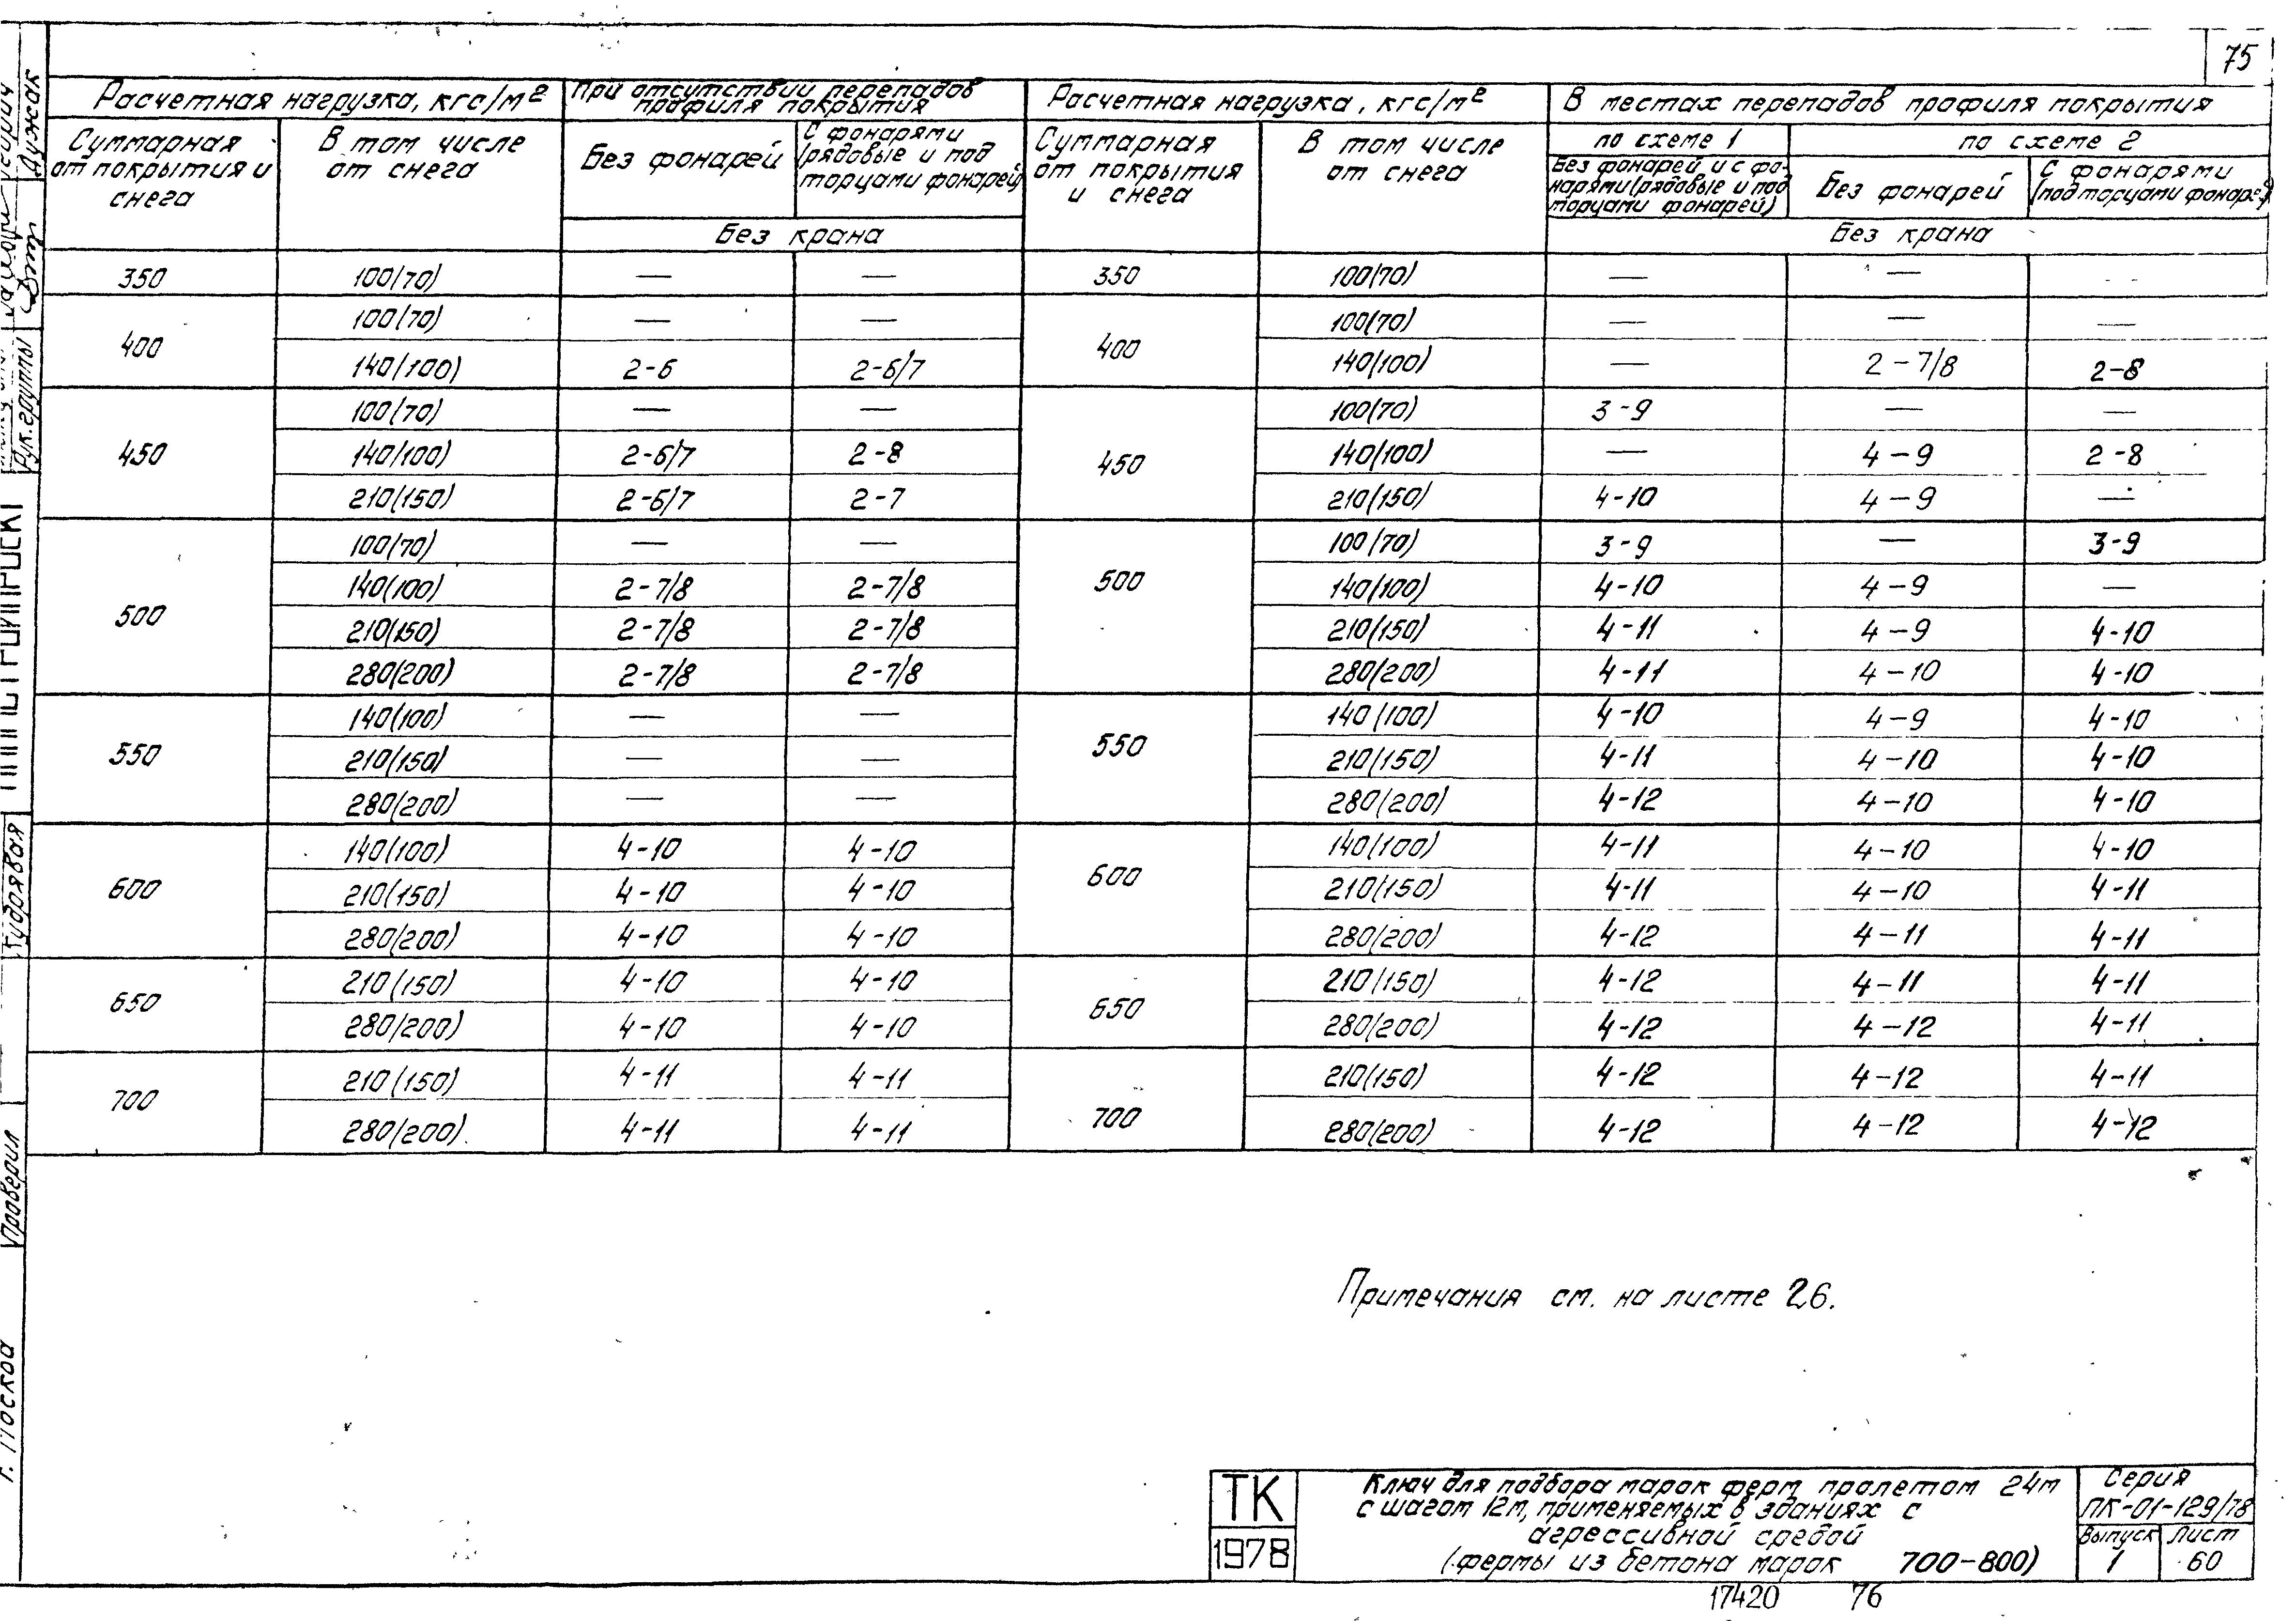 75
Расчетная нагрузка, кгс/м²
При отсутствии перепадов
профиля покрытия
Расчетная нагрузка, кгс/м²
В местах перепадов профиля покрытия
Суммарная
от покрытия и
снега
В том числе
от снега
Без фонарей
С фонарями
(рядовые и под
торцами фонарей)
Суммарная
от покрытия
и снега
В том числе
от снега
по схеме 1
по схеме 2
Без фонарей и с фо-
нарями (рядовые и под
торцами фонарей)
Без фонарей
С фонарями
(под торцами фонарей)
Без крана
Без крана
350 100(70) — — 350 100(70) — — —
400 100(70) — — 400 100(70) — — —
140(100) 2-6 2-6/7 140(100) — 2-7/8 2-8
450 100(70) — — 450 100(70) 3-9 — —
140(100) 2-6/7 2-8 140(100) — 4-9 2-8
210(150) 2-6/7 2-7 210(150) 4-10 4-9 —
500 100(70) — — 500 100(70) 3-9 — 3-9
140(100) 2-7/8 2-7/8 140(100) 4-10 4-9 —
210(150) 2-7/8 2-7/8 210(150) 4-11 4-9 4-10
280(200) 2-7/8 2-7/8 280(200) 4-11 4-10 4-10
550 140(100) — — 550 140(100) 4-10 4-9 4-10
210(150) — — 210(150) 4-11 4-10 4-10
280(200) — — 280(200) 4-12 4-10 4-10
600 140(100) 4-10 4-10 600 140(100) 4-11 4-10 4-10
210(150) 4-10 4-10 210(150) 4-11 4-10 4-11
280(200) 4-10 4-10 280(200) 4-12 4-11 4-11
650 210(150) 4-10 4-10 650 210(150) 4-12 4-11 4-11
280(200) 4-10 4-10 280(200) 4-12 4-12 4-11
700 210(150) 4-11 4-11 700 210(150) 4-12 4-12 4-11
280(200) 4-11 4-11 280(200) 4-12 4-12 4-12
Примечания см. на листе 26.
ТК
1978
Ключ для подбора марок ферм пролетом 24м
с шагом 12м, применяемых в зданиях с
агрессивной средой
(фермы из бетона марок 700-800)
Серия
ПК-01-129/78
Выпуск
1
Лист
60
17420 76
Рук.группы
Дужак
Проверил
г. Москва